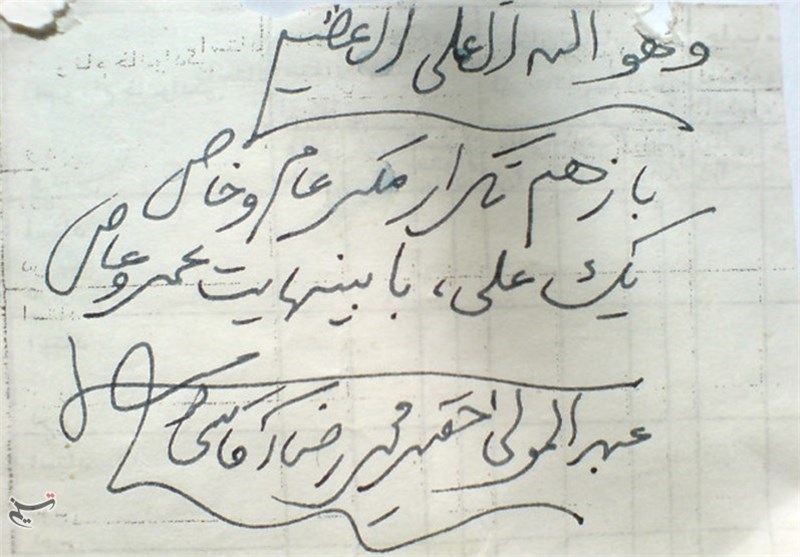 و هو الله العلی العظیم
باز هم تکرار مکر عام و خاص
یک علی، با بینهایت عمروعاص
عبدالمولی احقر محمد رضا آقاسی
تسنیم